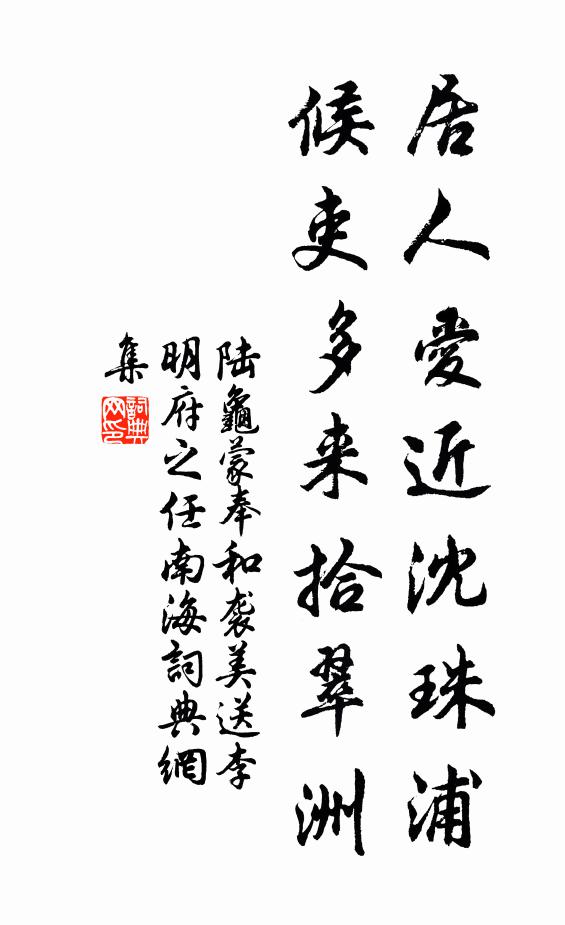 居人愛近沈珠浦
候吏多來拾翠洲
陸龜蒙奉和袭美送李
明府之任南海詞典網
集
詞典
网印